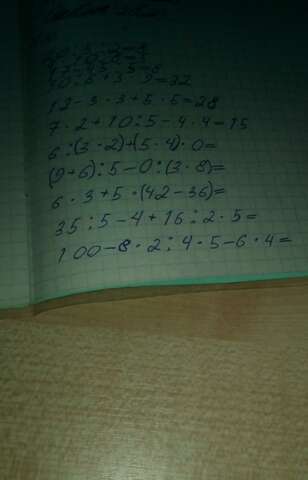 10:5+3·9=32
12-3·3+5·5=28
7·2+10:5-4·4=15
6:(3·2)+(5·4)·0=
(9+6):5-0:(3·8)=
6·3+5·(42-36)=
35:5-4+16:2·5=
100-8·2:4·5-6·4=